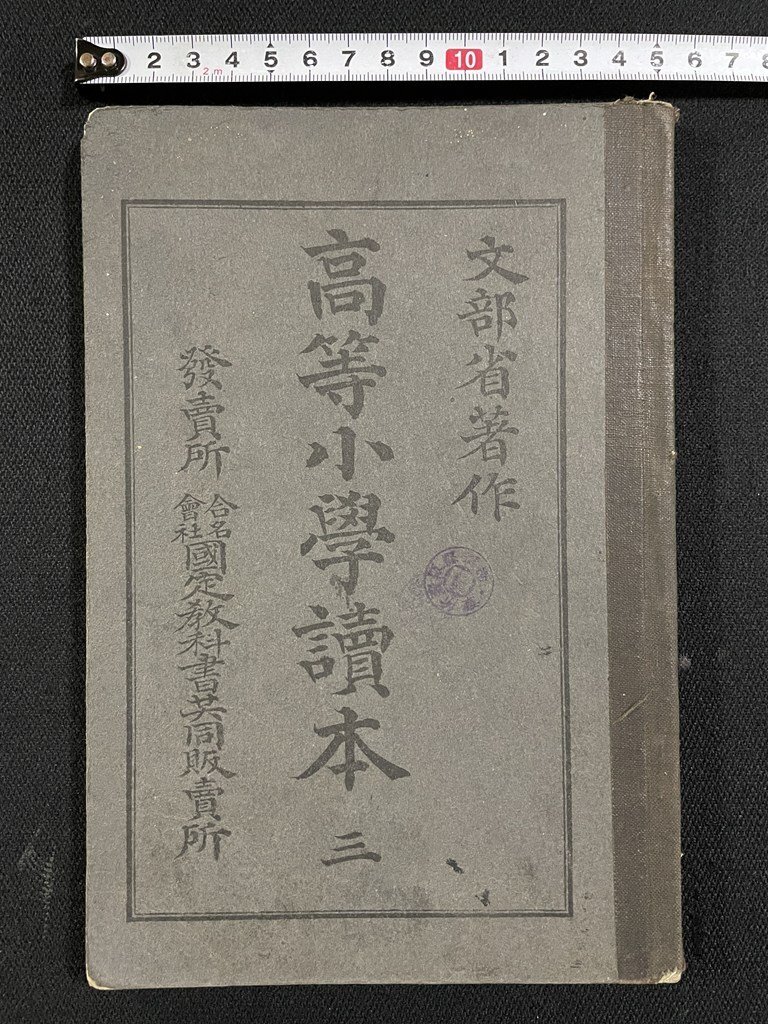 2 3 4 5 6 7 8 9 10 1 2 3 4 5 6 7 8
2m
文部省著作
高等小學讀本 三
發賣所 合名會社國定教科書共同販賣所